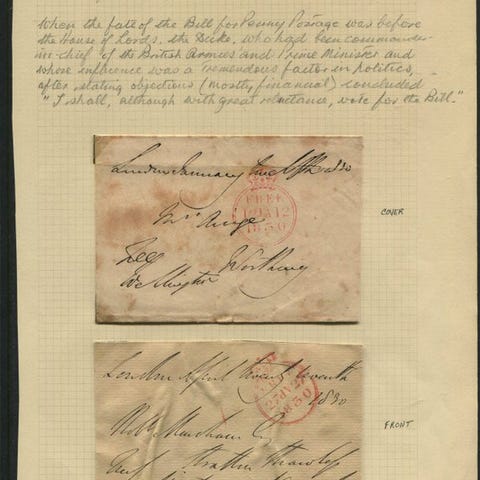 When the fate of the Bill for Penny Postage was before
the House of Lords, the Duke, who had been commander-
in-chief of the British Armies and Prime Minister and
whose influence was a tremendous factor in politics,
after stating objections (mostly financial) concluded
"I shall, although with great reluctance, vote for the Bill."
London January
FREE
12
1830
COVER
Mrs
Free
Worthing
Wellington
London April twenty seventh
1830
27
1830
FRONT